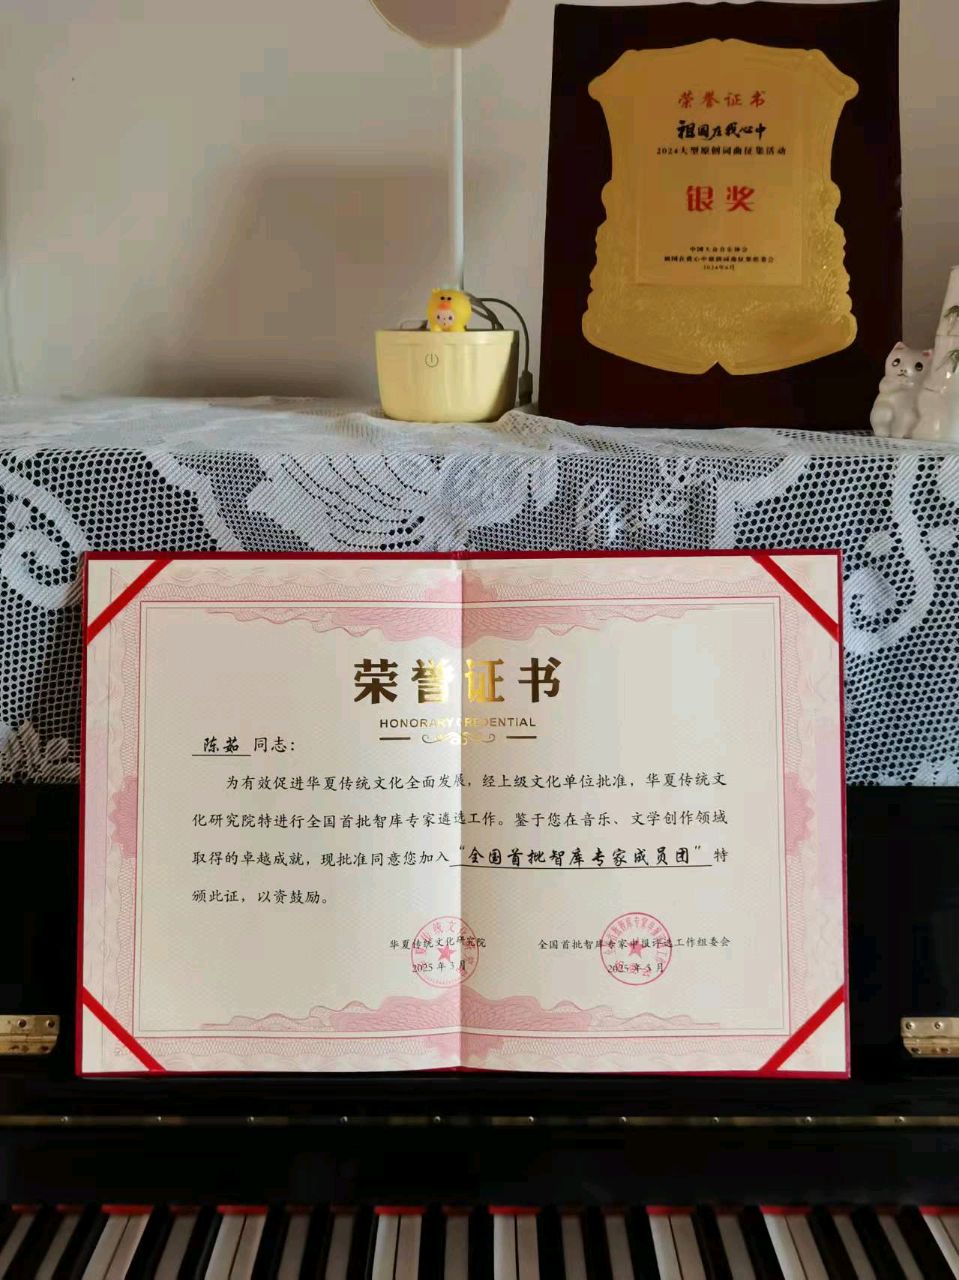 荣誉证书
祖国在我心中
2024大型原创词曲征集活动
银奖
中国大众音乐协会
祖国在我心中原创词曲征集组委会
2024年6月
荣誉证书
HONORARY CREDENTIAL
陈茹 同志：
为有效促进华夏传统文化全面发展，经上级文化单位批准，华夏传统文
化研究院特进行全国首批智库专家遴选工作。鉴于您在音乐、文学创作领域
取得的卓越成就，现批准同意您加入“全国首批智库专家成员团”特
颁此证，以资鼓励。
华夏传统文化研究院
2025年3月
全国首批智库专家申报评选工作组委会
2025年3月